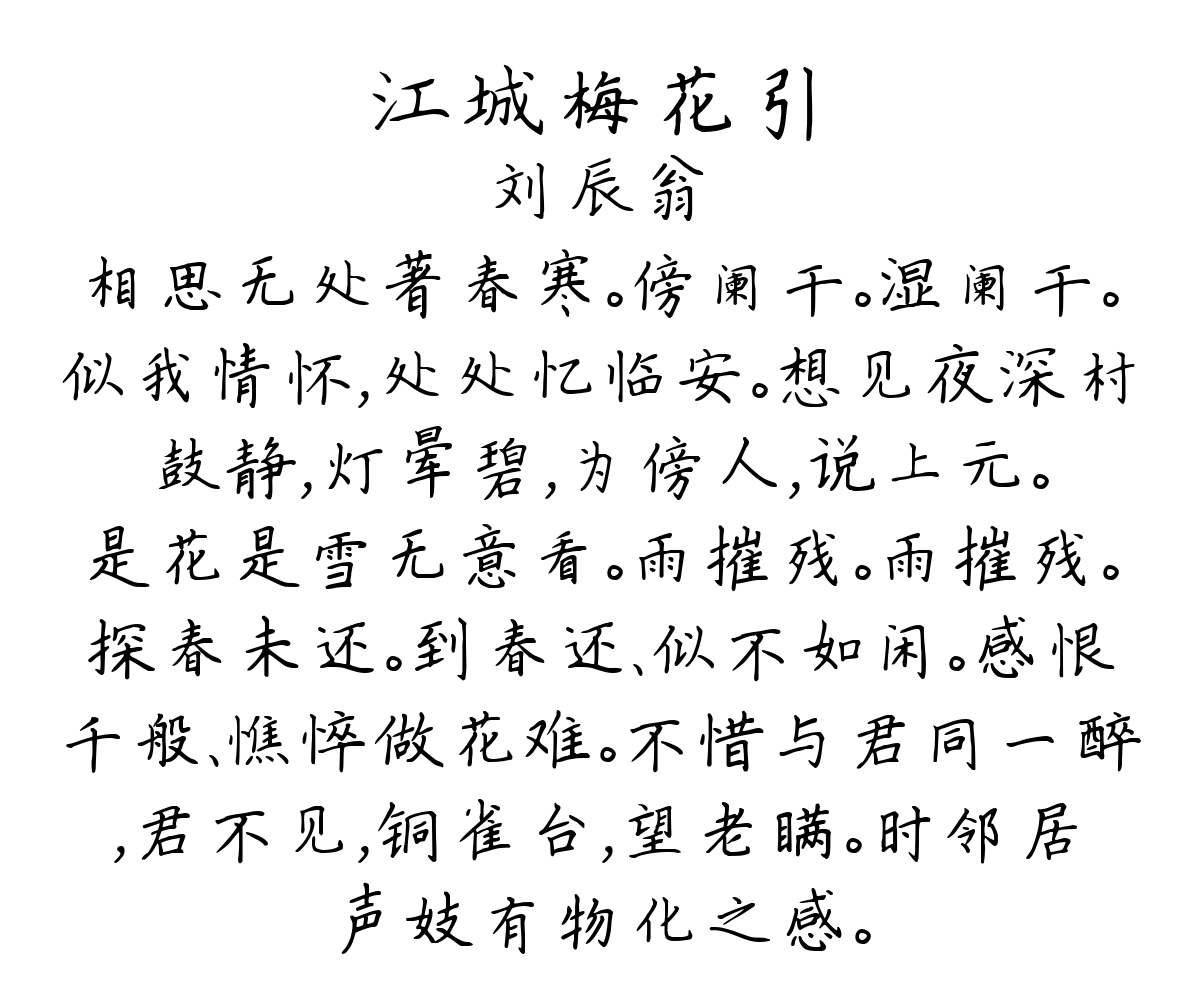 江城梅花引
刘辰翁
相思无处著春寒。傍阑干。湿阑干。
似我情怀,处处忆临安。想见夜深村
鼓静,灯晕碧,为傍人,说上元。
是花是雪无意看。雨摧残。雨摧残。
探春未还。到春还、似不如闲。感恨
千般、憔悴做花难。不惜与君同一醉
,君不见,铜雀台,望老瞒。时邻居
声妓有物化之感。